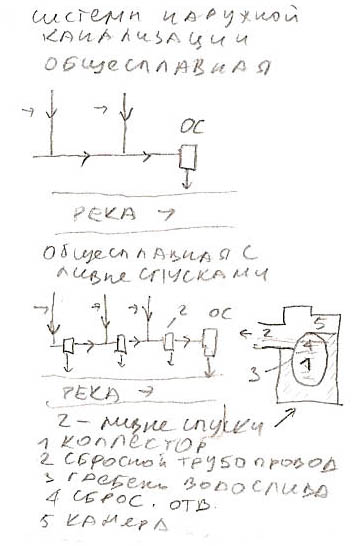 СИСТЕМЫ НАРУЖНОЙ
КАНАЛИЗАЦИИ
ОБЩЕСПЛАВНАЯ
ОС
РЕКА →
ОБЩЕСПЛАВНАЯ С
ЛИВНЕСПУСКАМИ
2 ОС
РЕКА →
2 5
4
3 1
2 - ЛИВНЕСПУСКИ
1 КОЛЛЕКТОР
2 СБРОСНОЙ ТРУБОПРОВОД
3 ГРЕБЕНЬ ВОДОСЛИВА
4 СБРОС. ОТВ.
5 КАМЕРА